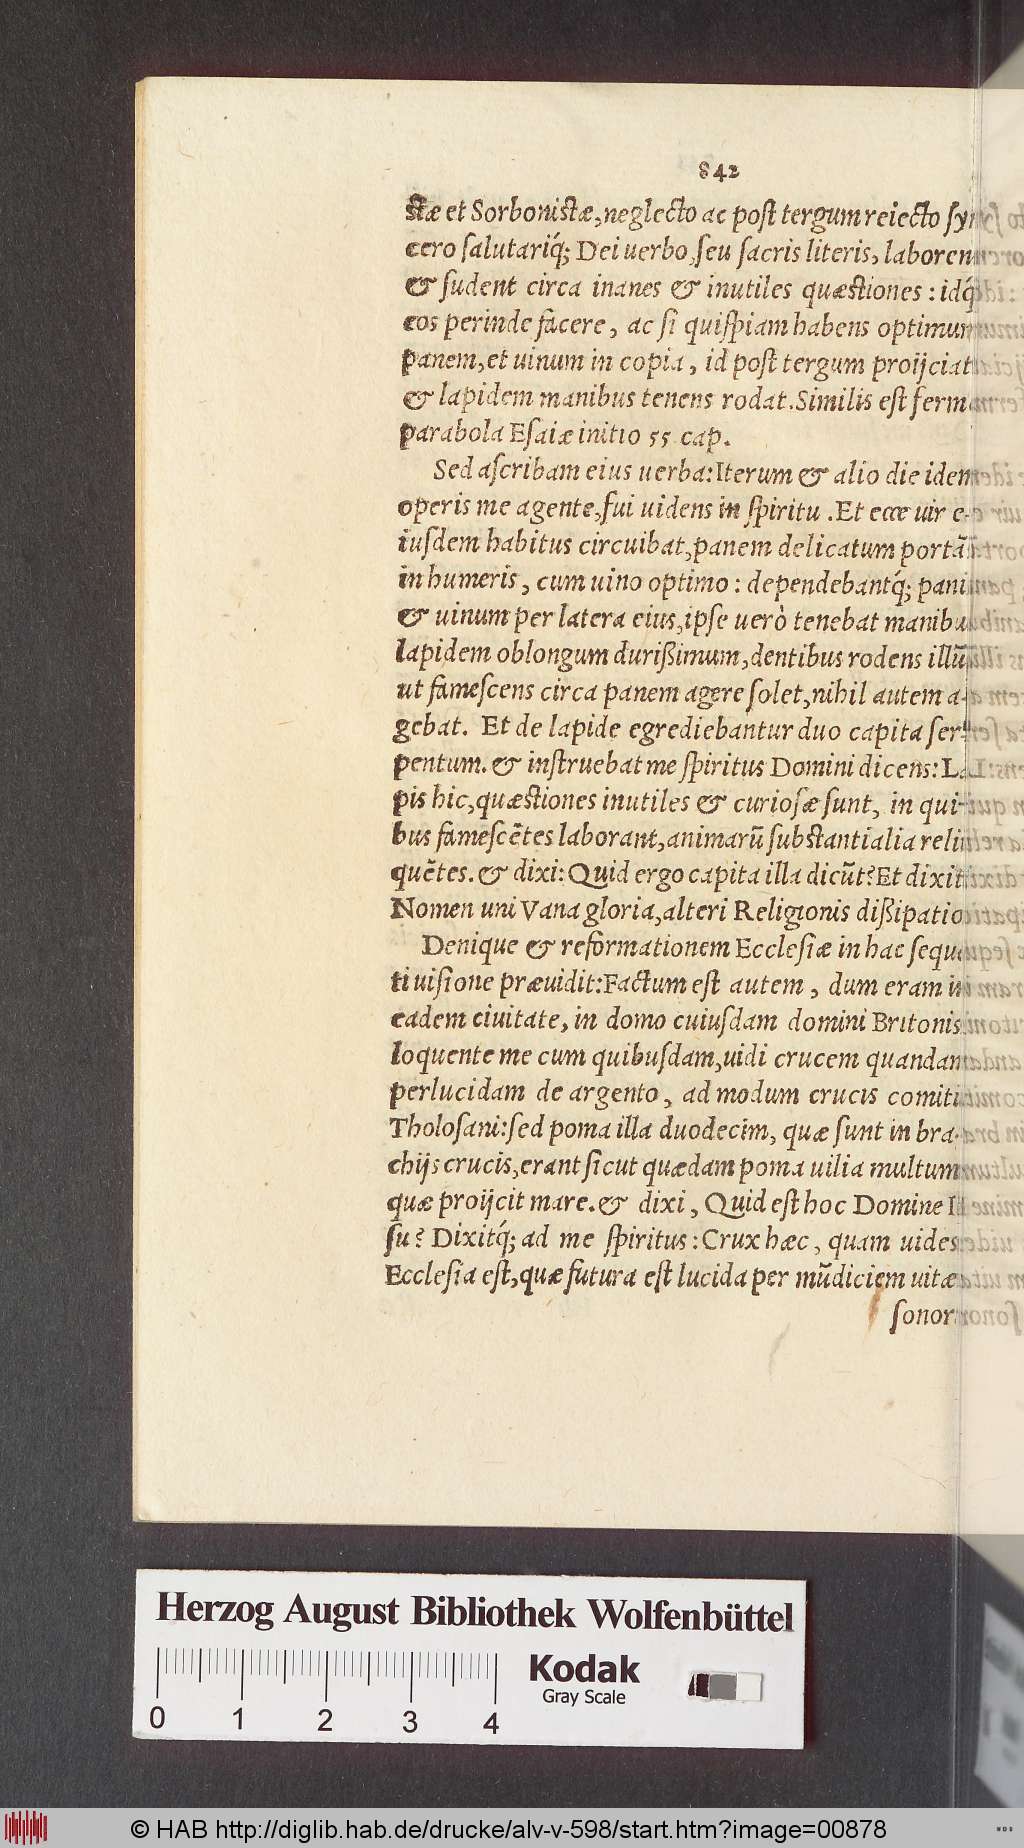 842
stæ et Sorbonistæ, neglecto ac post tergum reiecto syn
cero salutariq́; Dei uerbo, seu sacris literis, laboren
& sudent circa inanes & inutiles quæstiones : idq́
eos perinde facere, ac si quispiam habens optimum
panem, et uinum in copia, id post tergum proijciat
& lapidem manibus tenens rodat. Similis est ferm
parabola Esaiæ initio 55 cap.
Sed ascribam eius uerba: Iterum & alio die idem
operis me agente, fui uidens in spiritu. Et ecce uir e-
iusdem habitus circuibat, panem delicatum portã
in humeris, cum uino optimo : dependebantq́; pani
& uinum per latera eius, ipse uerò tenebat manibu
lapidem oblongum durißimum, dentibus rodens illũ
ut famescens circa panem agere solet, nihil autem a-
gebat. Et de lapide egrediebantur duo capita ser-
pentum. & instruebat me spiritus Domini dicens: La
pis hic, quæstiones inutiles & curiosæ sunt, in qui-
bus famescẽtes laborant, animarũ substantialia relin
quẽtes. & dixi: Quid ergo capita illa dicũt? Et dixit
Nomen uni Vana gloria, alteri Religionis dißipatio
Denique & reformationem Ecclesiæ in hac seque
ti uisione præuidit: Factum est autem, dum eram in
eadem ciuitate, in domo cuiusdam domini Britonis
loquente me cum quibusdam, uidi crucem quandam
perlucidam de argento, ad modum crucis comiti
Tholosani: sed poma illa duodecim, quæ sunt in bra-
chijs crucis, erant sicut quædam poma uilia multum
quæ proijcit mare. & dixi, Quid est hoc Domine Ie
su? Dixitq́; ad me spiritus: Crux hæc, quam uides
Ecclesia est, quæ futura est lucida per mũdiciem uitæ
sonor
Herzog August Bibliothek Wolfenbüttel
Kodak
Gray Scale
0 1 2 3 4
© HAB http://diglib.hab.de/drucke/alv-v-598/start.htm?image=00878